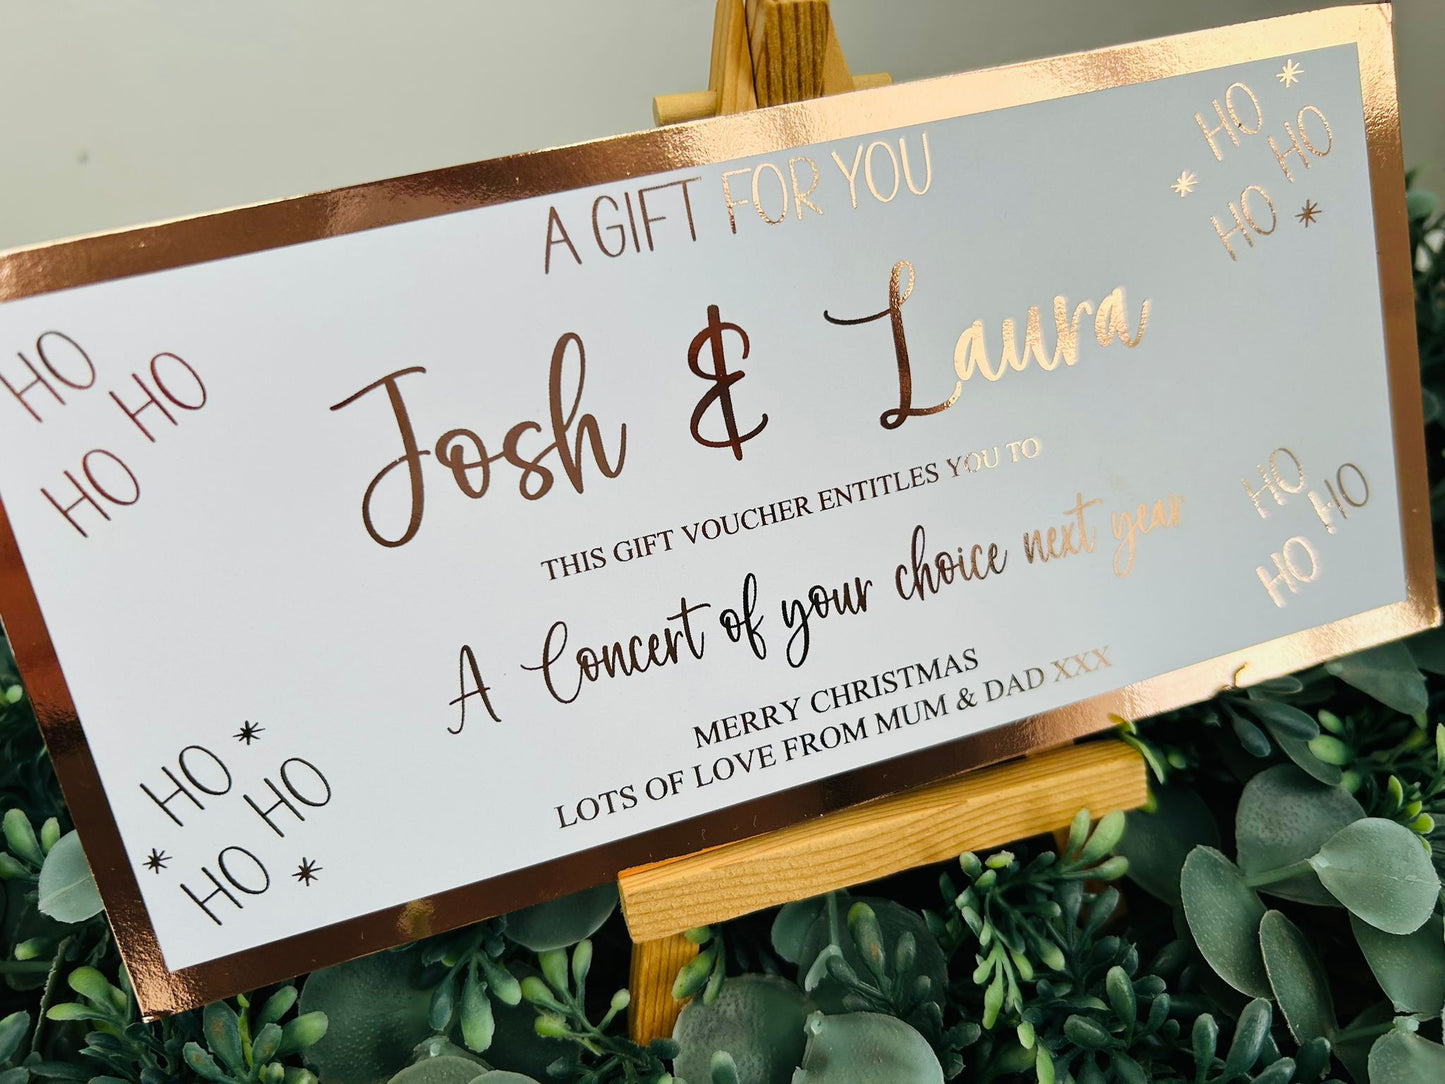 A GIFT FOR YOU
HO
HO
HO
HO
HO
HO
Josh & Laura
THIS GIFT VOUCHER ENTITLES YOU TO
A Concert of your choice next year
HO
HO
HO
MERRY CHRISTMAS
LOTS OF LOVE FROM MUM & DAD XXX
HO
HO
HO